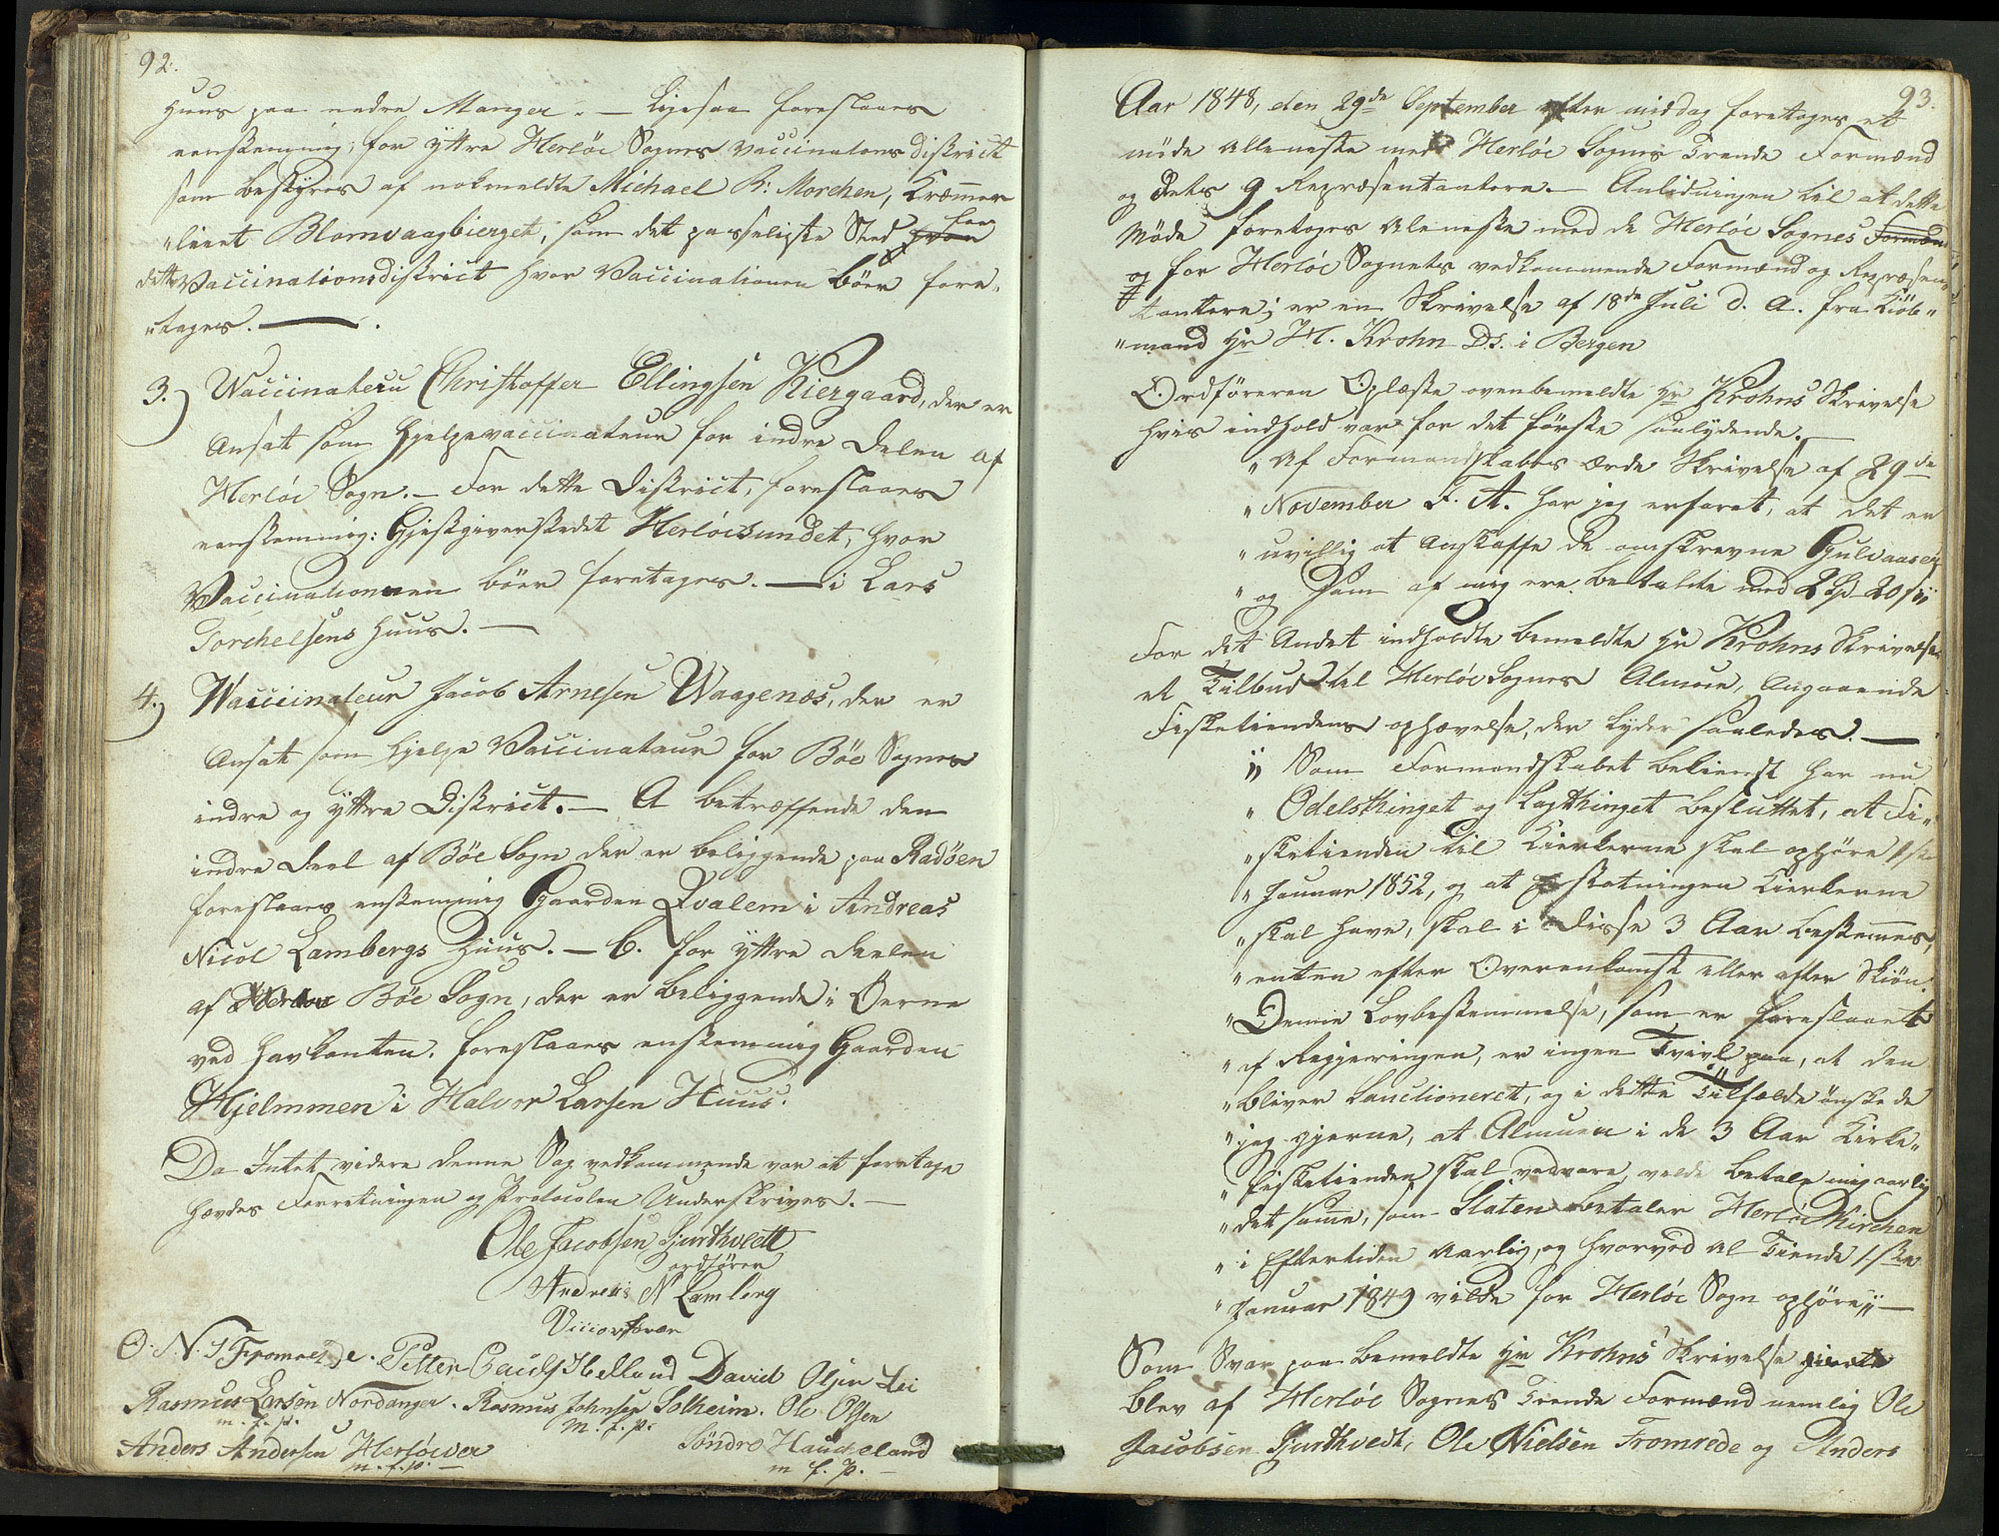 92.
Huus paa nedre Manger. — Ligesaa foreslaaes
eenstemmig, for yttre Herløe Sogns vaccinations district
som bestyres af nokmeldte Michael R: Morchen, Kræmmer
"leiet Blomvaagbierget, som det passeligste Sted for
dette Vaccinationsdistrict hvor Vaccinationen bøer fore-
"tages. —
3.) Waccinateur Christoffer Ellingsen Kiergaard, der er
Ansat som Hjelpevaccinateur for indre Delen af
Herløe Sogn. — For dette District, foreslaaes
eenstemmig: Gjestgiverstedet Herløesundet, hvor
Vaccinationen bøer foretages. — i Lars
Torchelsens Huus. —
4.) Waccinateur Jacob Arnesen Waagenæs, der er
Ansat som Hjelpe Vaccinateur for Bøe Sogns
indre og yttre District. — A betræffende den
indre Deel af Bøe Sogn der er beliggende paa Radøen
foreslaaes enstemmig Gaarden Qvalem i Andreas
Nicol Lambergs Huus. — b. for yttre Deelen
af Bøe Sogn, der er beliggende i Øerne
ved Havkanten, foreslaaes enstemmig Gaarden
Hjelmmen i Halvor Larsen Huus.
Da Intet videre denne Sag vedkommende var at foretage
hævdes Forretningen og Protocolen Underskrives. —
Ole Jacobsen Sjurthvedt
ordfører
Andreas N Lamberg
Viceordfører
O. N. S Fromrede. Petter Helland David Olsen Lei
Rasmus Larsen Nordanger. Rasmus Johnsen Solheim. Ole Olsen
m. f. p. m. f. p.
Anders Andersen Herløever Søndre Haudeland
m. f. p. — m f. p. —
93.
Aar 1848, den 29de September efter middag foretoges et
møde alleneste med Herløe Sogns Trende Formænd
og dets 9 Repræsentantere. — Anledningen til at dette
Møde foretoges aleneste med de Herløe Sognes Formænd
og for Herløe Sognets vedkommende Formænd og Repræsen-
tantere; er en Skrivelse af 18de Juli d. A. fra Kiøb-
"mand Hr H. Krohn Ds. i Bergen
Ordføreren Oplæste ovenbemeldte Hr Krohns Skrivelse
hvis indhold var for det første saalydende. —
"Af Formandskabets ærede Skrivelse af 29de
"November F. A. har jeg erfaret, at det er
"uvillig at Anskaffe de omskrevne Gulvaaser
"og som af mig ere betalte med 2 Spd 20 s"
For det Andet indholdte bemeldte Hr Krohns Skrivelse
et Tilbud til Herløe Sognes Almue, Angaaende
Fisketiendens ophævelse, der lyder saaledes. —
"Som Formandskabet bekiendt har nu
"Odelsthinget og Lagthinget besluttet, at Fi-
"sketienden til Kirkerne skal ophøre 1ste
"Januar 1852, og at Erstatningen Kirkerne
"skal have, skal i disse 3 Aar bestemmes,
"enten efter Overenkomst eller efter Skiøn.
"Denne Lovbestemmelse, som er foreslaaet
"af Regjeringen, er ingen Tvivl paa, at den
"bliver Sanctioneret, og i dette Tilfælde ønskede
"jeg gjerne, at Almuen i de 3 Aar Kirke-
"fisketienden skal vedvare, vilde betale mig aarlig
"det samme, som Staten betaler Herløe Kirchen
"i Eftertiden Aarlig, og hvorved al Tiende 1ste
"Januar 1849 vilde for Herløe Sogn ophøre" —
Som Svar paa bemeldte Hr Krohns Skrivelse
blev af Herløe Sognes Trende Formænd nemlig Ole
Jacobsen Sjurthvedt, Ole Nielsen Fromrede og Anders